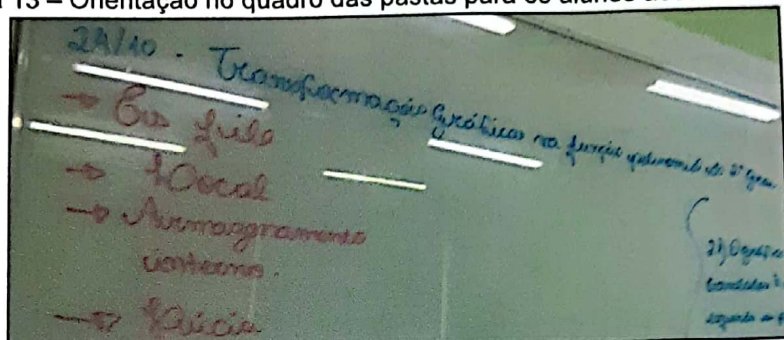 13 – Orientação no quadro das pastas para os alunos
24/10 - Transformação Gráficas na função polinomial do 2º grau
→ Gis file
→ Local
→ Armazenamento
interno.
→ Início
2) O gráfico